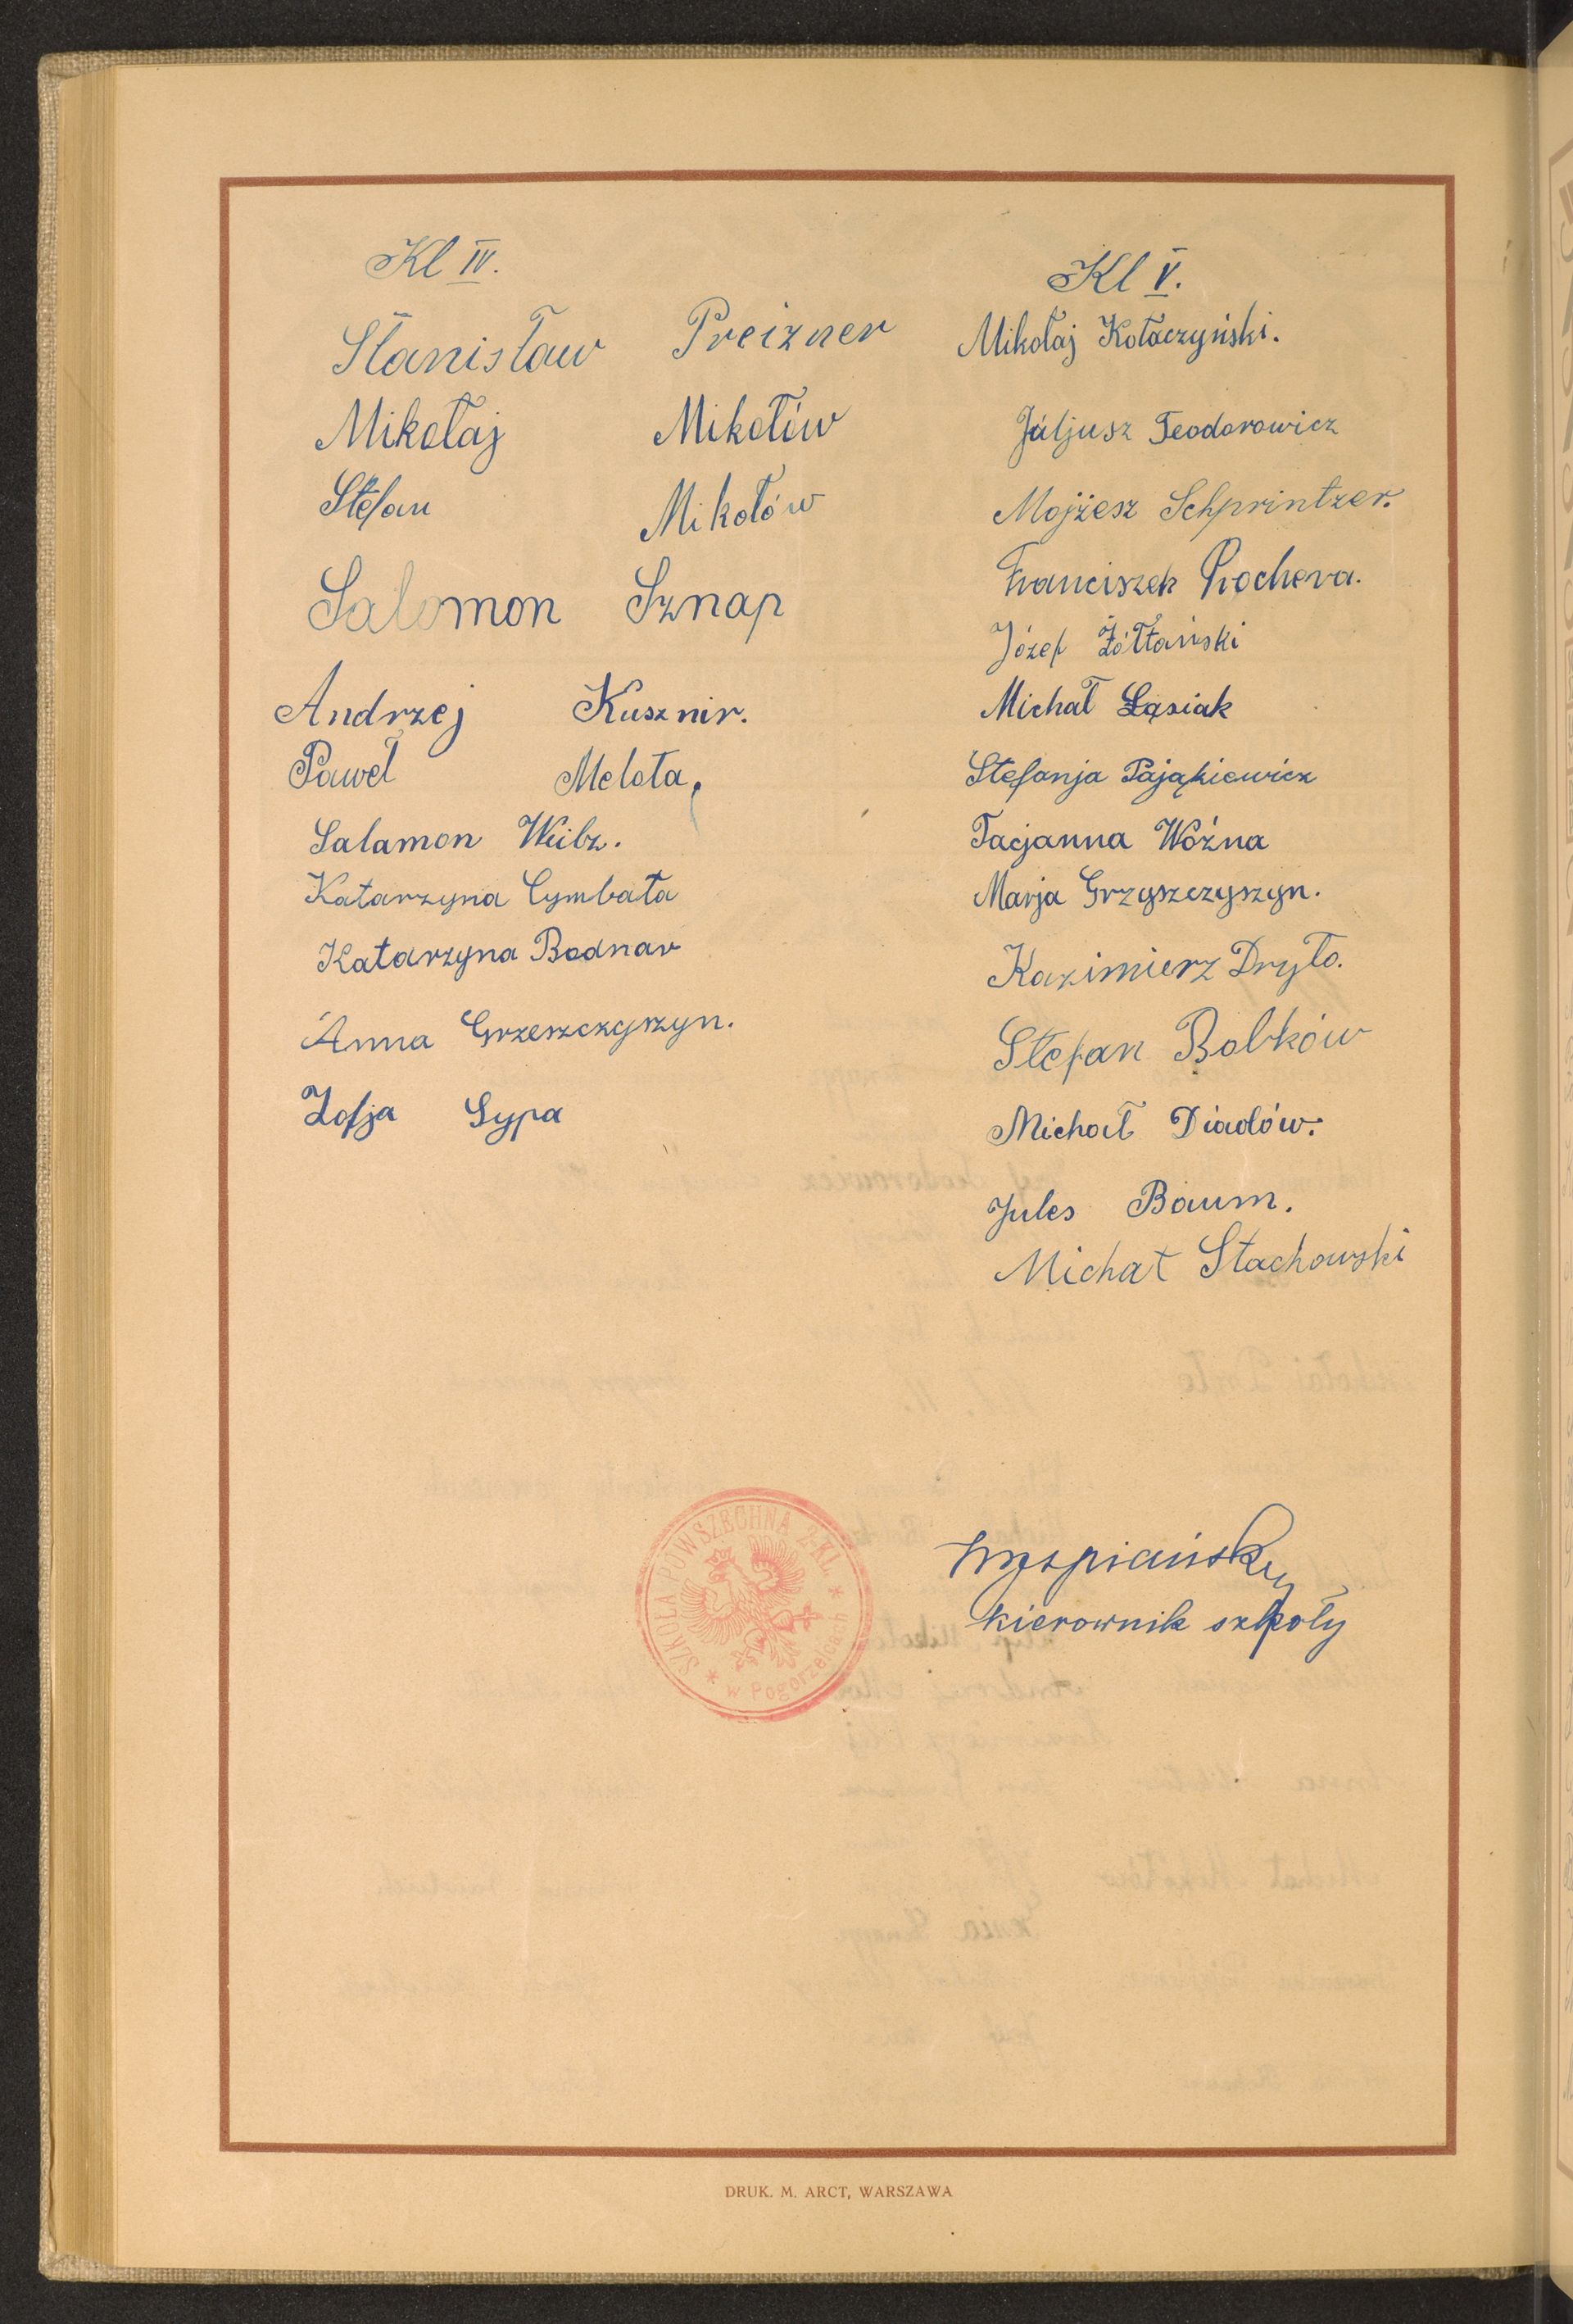 Kl IV.
Stanisław Preizner
Mikołaj Mikołów
Stefan Mikołów
Salomon Sznap
Andrzej Kusznir.
Paweł Melota,
Salamon Weibz.
Katarzyna Cymbała
Katarzyna Bodnar
Anna Grzeszczyszyn.
Zofja Gypa
Kl V.
Mikołaj Kołaczyński.
Juljusz Teodorowicz
Mojżesz Schprintzer.
Franciszek Prochera.
Józef Żółtański
Michał Łąsiak
Stefanja Pająkiewicz
Tacjanna Woźna
Marja Grzyszczyszyn.
Kazimierz Dryło.
Stefan Bobków
Michał Diadów.
Jules Baum.
Michał Stachowski
SZKOŁA POWSZECHNA 2 KL. * w Pogorzelcach *
Wyspiański
kierownik szkoły
DRUK. M. ARCT, WARSZAWA